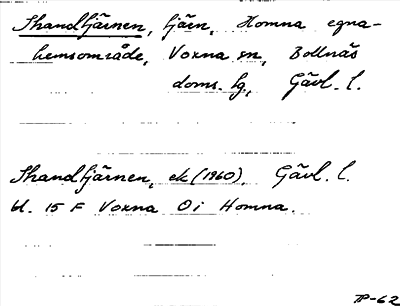 Skandtjärnen, tjärn, Homna egna-
hemsområde, Voxna sn, Bollnäs
doms. lg, Gävl. l.
Skandtjärnen, ek (1960), Gävl. l.
bl. 15 F Voxna Öi Homna.
TP-62